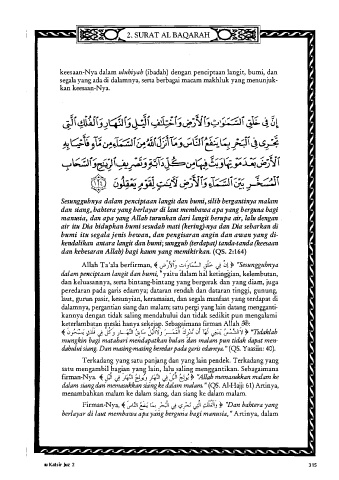 2. SURAT AL BAQARAH
keesaan-Nya dalam uluhiyah (ibadah) dengan penciptaan langit, bumi, dan
segala yang ada di dalamnya, serta berbagai macam makhluk yang menunjuk-
kan keesaan-Nya.
إِنَّ فِي خَلْقِ السَّمَٰوَٰتِ وَالْأَرْضِ وَاخْتِلَٰفِ الَّيْلِ وَالنَّهَارِ وَالْفُلْكِ الَّتِي
تَجْرِي فِي الْبَحْرِ بِمَا يَنفَعُ النَّاسَ وَمَا أَنزَلَ اللَّهُ مِنَ السَّمَاءِ مِن مَّاءٍ فَأَحْيَا بِهِ
الْأَرْضَ بَعْدَ مَوْتِهَا وَبَثَّ فِيهَا مِن كُلِّ دَابَّةٍ وَتَصْرِيفِ الرِّيَٰحِ وَالسَّحَابِ
الْمُسَخَّرِ بَيْنَ السَّمَاءِ وَالْأَرْضِ لَآيَٰتٍ لِّقَوْمٍ يَعْقِلُونَ ١٦٤
Sesungguhnya dalam penciptaan langit dan bumi, silih bergantinya malam
dan siang, bahtera yang berlayar di laut membawa apa yang berguna bagi
manusia, dan apa yang Allah turunkan dari langit berupa air, lalu dengan
air itu Dia hidupkan bumi sesudah mati (kering)-nya dan Dia sebarkan di
bumi itu segala jenis hewan, dan pengisaran angin dan awan yang di-
kendalikan antara langit dan bumi; sungguh (terdapat) tanda-tanda (keesaan
dan kebesaran Allah) bagi kaum yang memikirkan. (QS. 2:164)
Allah Ta'ala berfirman, ﴿ إِنَّ فِي خَلْقِ السَّمَاوَاتِ وَالْأَرْضِ ﴾ "Sesungguhnya
dalam penciptaan langit dan bumi," yaitu dalam hal ketinggian, kelembutan,
dan keluasannya, serta bintang-bintang yang bergerak dan yang diam, juga
peredaran pada garis edarnya; dataran rendah dan dataran tinggi, gunung,
laut, gurun pasir, kesunyian, keramaian, dan segala manfaat yang terdapat di
dalamnya, pergantian siang dan malam; satu pergi yang lain datang mengganti-
kannya dengan tidak saling mendahului dan tidak sedikit pun mengalami
keterlambatan meski hanya sekejap. Sebagaimana firman Allah ﷻ:
﴿ لَا الشَّمْسُ يَنبَغِي لَهَا أَن تُدْرِكَ الْقَمَرَ وَلَا اللَّيْلُ سَابِقُ النَّهَارِ وَكُلٌّ فِي فَلَكٍ يَسْبَحُونَ ﴾ "Tidaklah
mungkin bagi matahari mendapatkan bulan dan malam pun tidak dapat men-
dahului siang. Dan masing-masing beredar pada garis edarnya." (QS. Yaasiin: 40).
Terkadang yang satu panjang dan yang lain pendek. Terkadang yang
satu mengambil bagian yang lain, lalu saling menggantikan. Sebagaimana
firman-Nya, ﴿ يُولِجُ اللَّيْلَ فِي النَّهَارِ وَيُولِجُ النَّهَارَ فِي اللَّيْلِ ﴾ "Allah memasukkan malam ke
dalam siang dan memasukkan siang ke dalam malam." (QS. Al-Hajj: 61) Artinya,
menambahkan malam ke dalam siang, dan siang ke dalam malam.
Firman-Nya, ﴿ وَالْفُلْكِ الَّتِي تَجْرِي فِي الْبَحْرِ بِمَا يَنفَعُ النَّاسَ ﴾ "Dan bahtera yang
berlayar di laut membawa apa yang berguna bagi manusia," Artinya, dalam
Katsir Juz 2
315